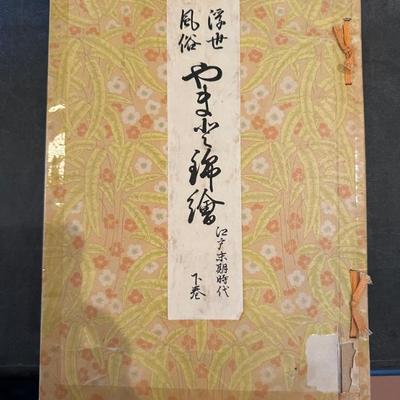 浮世
風俗
やまと錦繪
江戸末期時代
下卷